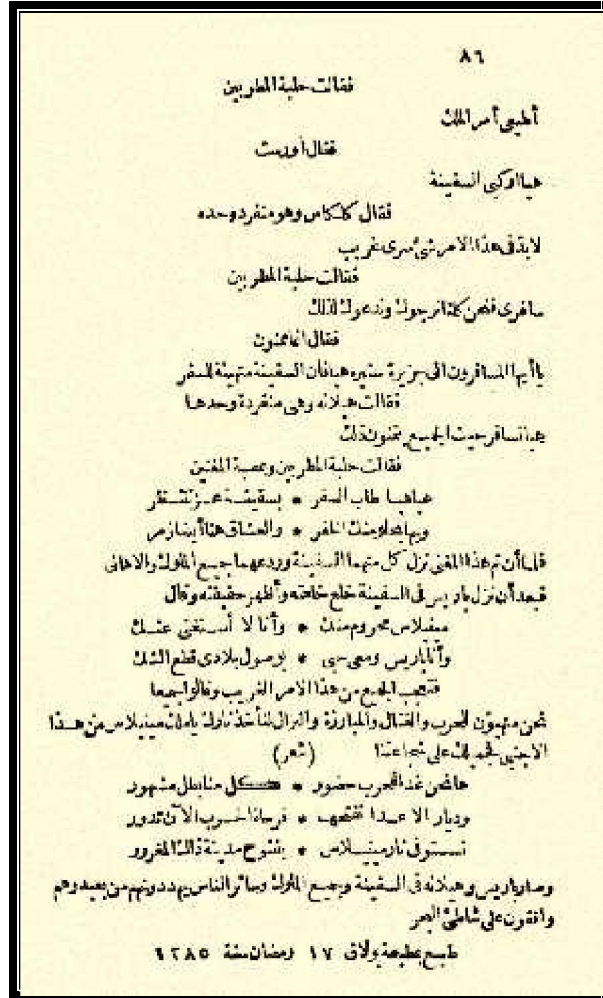 ٨٦
فقالت حلبة المطربين
أطيعى أمر الملك
فقال أورست
هيا اركبى السفينة
فقال كلكاس وهو منفرد وحده
لابد فى هذا الامر شئ سرى غريب
فقالت حلبة المطربين
سافرى فنحن كلنا نرجوك وندعوك لذلك
فقال اغاممنون
ياأيها المسافرون الى جزيرة ستيره هيا فان السفينة متهيئة للسفر
فقالت هيلانه وهى منفردة وحدها
هيا نسافر حيث الجميع يتمنون ذلك
فقالت حلبة المطربين وعصبة المغنين
هيا هيا طاب السفر * بسفينة عز تنتظر
والعشاق هنا أينا زمر *
فلما أن تم هذا المغنى نزل كل منهما السفينة وودعهما جميع الملوك والاهالى
فبعد أن نزل باريس فى السفينة خلع خلعته وأظهر حقيقته وقال
مينلاس محروم منك * وأنا لا أستغنى عنك
وأنا باريس ومعى حبى * بوصول بلادى قطع الشك
فتعجب الجميع من هذا الامر الغريب وقالوا جمعا
نحن متهيؤن للحرب والقتال والمبارزة والنزال لنأخذ ثارك يا ملك مينيلاس من هذا
الاجنبى على شجاعتنا (شعر)
هانحن غدا للحرب حضور * كل منا بطل مشهور
وديار الاعدا نفتحها * فرحاة الحرب الآن تدور
نستوفى ثار مينيلاس * بفتوح مدينة ذاك المغرور
وصار باريس وهيلانه فى السفينة وجميع الملوك وسائر الناس يهددونهم من بعيد وهم
واقفون على شاطئ البحر
طبع بمطبعة بولاق ١٧ رمضان سنة ١٢٨٥